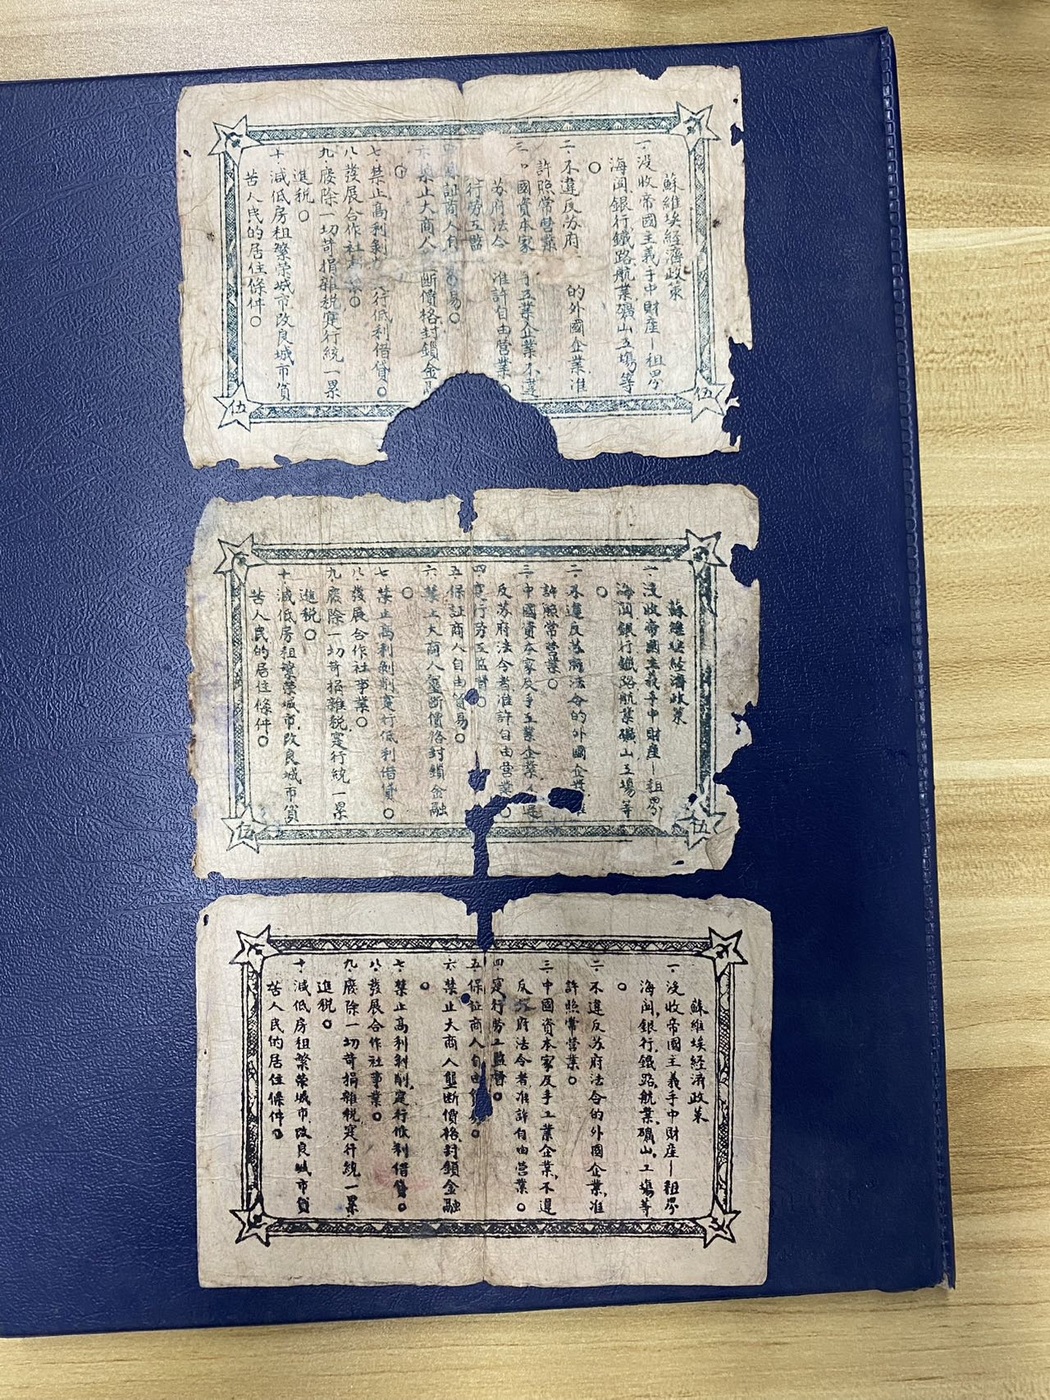 蘇維埃經濟政策
一.沒收帝國主義手中財產—租界
海関銀行鐵路航業礦山工場等
○
二.不違反苏府 的外國企業准
許照常營業
三. 國資本家 手工業企業不違
苏府法令 准許自由營業
行労工監
証商人自 易○
六.禁止大商人 断價格封鎖金
○
七.禁止高利剝 行低利借貸○
八.發展合作社事業○
九.廢除一切苛捐雜税寔行統一累
進税○
十.減低房租繁荣城市改良城市貧
苦人民的居住條件○
伍
伍
蘇維埃經濟政策
一.沒收帝國主義手中財產—租界
海関銀行鐵路航業礦山工場等
○
二.不違反苏府法令的外國企業准
許照常營業○
三.中國資本家及手工業企業 違
反苏府法令者准許自由營業
四.寔行労工監督○
五.保証商人自由貿易○
六.禁止大商人壟断價格封鎖金融
○
七.禁止高利剝削寔行低利借貸○
八.發展合作社事業○
九.廢除一切苛捐雜税寔行統一累
進税○
十.減低房租繁荣城市改良城市貧
苦人民的居住條件○
伍
伍
蘇維埃經済政策
一.沒收帝國主義手中財產—租界
海関銀行鐵路航業礦山工場等
○
二.不違反苏府法令的外國企業准
許照常營業○
三.中國資本家及手工業企業不違
反苏府法令者准許自由營業○
四.寔行労工監督○
五.保証商人自由 易○
六.禁止大商人壟断價格封鎖金融
○
七.禁止高利剝削寔行低利借貸○
八.發展合作社事業○
九.廢除一切苛捐雜税寔行統一累
進税○
十.減低房租繁荣城市改良城市貧
苦人民的居住條件○